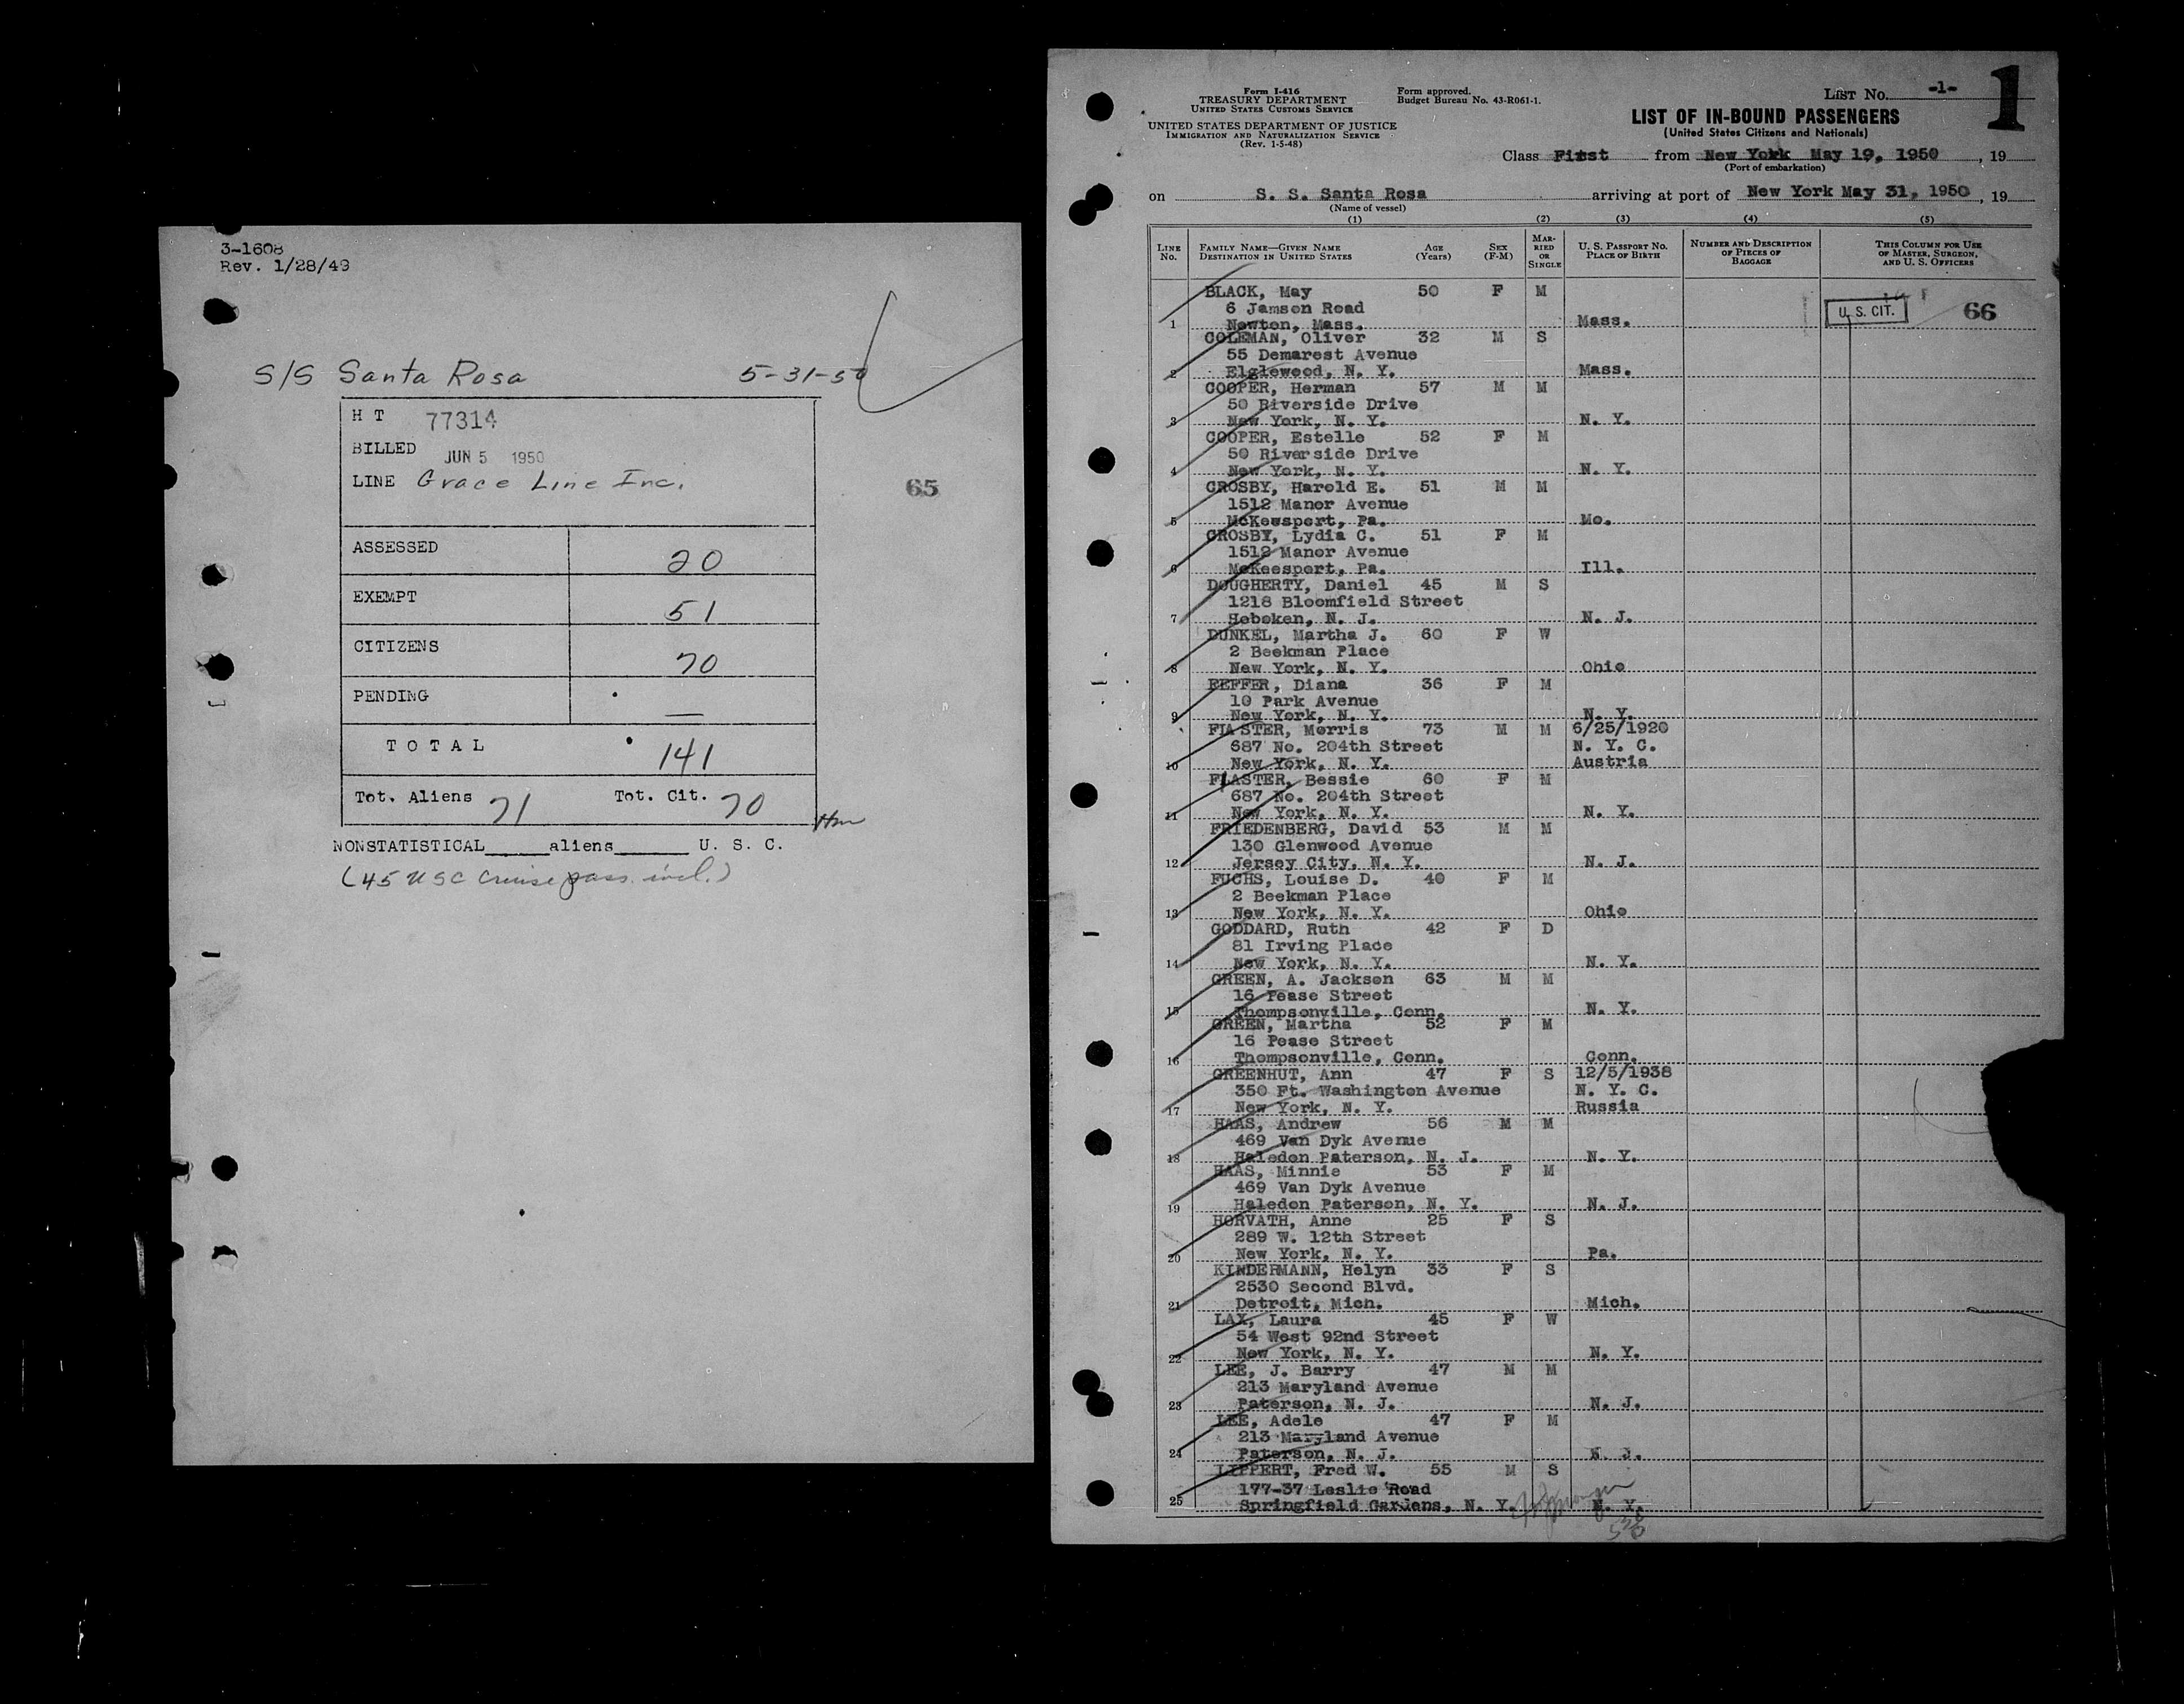 3-1608
Rev. 1/28/49
S/S Santa Rosa 5-31-50
H T 77314
BILLED JUN 5 1950
LINE Grace Line Inc.
65
ASSESSED 20
EXEMPT 51
CITIZENS 70
PENDING —
TOTAL 141
Tot. Aliens 71 Tot. Cit. 70
NONSTATISTICAL_____aliens______ U. S. C.
(45 USC Cruise pass. incl.)
1
Form I-416
TREASURY DEPARTMENT
UNITED STATES CUSTOMS SERVICE
UNITED STATES DEPARTMENT OF JUSTICE
IMMIGRATION AND NATURALIZATION SERVICE
(Rev. 1-5-48)
Form approved.
Budget Bureau No. 43-R061-1.
LIST No. -1-
LIST OF IN-BOUND PASSENGERS
(United States Citizens and Nationals)
Class First from New York May 19, 1950, 19
(Port of embarkation)
on S. S. Santa Rosa arriving at port of New York May 31, 1950, 19
(Name of vessel)
(1) (2) (3) (4) (5)
LINE No. FAMILY NAME—GIVEN NAME DESTINATION IN UNITED STATES AGE (Years) SEX (F-M) MARRIED OR SINGLE U. S. PASSPORT NO. PLACE OF BIRTH NUMBER AND DESCRIPTION OF PIECES OF BAGGAGE THIS COLUMN FOR USE OF MASTER, SURGEON, AND U. S. OFFICERS
BLACK, May 50 F M
6 Jamson Road U. S. CIT. 66
1 Newton, Mass. Mass.
COLEMAN, Oliver 32 M S
55 Demarest Avenue
2 Elglewood, N. Y. Mass.
COOPER, Herman 57 M M
50 Riverside Drive
3 New York, N. Y. N. Y.
COOPER, Estelle 52 F M
50 Riverside Drive
4 New York, N. Y. N. Y.
CROSBY, Harold E. 51 M M
1512 Manor Avenue
5 McKeesport, Pa. Mo.
CROSBY, Lydia C. 51 F M
1512 Manor Avenue
6 McKeesport, Pa. Ill.
DOUGHERTY, Daniel 45 M S
1218 Bloomfield Street
7 Hoboken, N. J. N. J.
DUNKEL, Martha J. 60 F W
2 Beekman Place
8 New York, N. Y. Ohio
EEFFER, Diana 36 F M
10 Park Avenue
9 New York, N. Y. N. Y.
FLASTER, Morris 73 M M 6/25/1920
687 No. 204th Street N. Y. C.
10 New York, N. Y. Austria
FLASTER, Bessie 60 F M
687 No. 204th Street
11 New York, N. Y. N. Y.
FRIEDENBERG, David 53 M M
130 Glenwood Avenue
12 Jersey City, N. Y. N. J.
FUCHS, Louise D. 40 F M
2 Beekman Place
13 New York, N. Y. Ohio
GODDARD, Ruth 42 F D
81 Irving Place
14 New York, N. Y. N. Y.
GREEN, A. Jackson 63 M M
16 Pease Street
15 Thompsonville, Conn. N. Y.
GREEN, Martha 52 F M
16 Pease Street
16 Thompsonville, Conn. Conn.
GREENHUT, Ann 47 F S 12/5/1938
350 Ft. Washington Avenue N. Y. C.
17 New York, N. Y. Russia
HAAS, Andrew 56 M M
469 Van Dyk Avenue
18 Haledon Paterson, N. J. N. Y.
HAAS, Minnie 53 F M
469 Van Dyk Avenue
19 Haledon Paterson, N. Y. N. J.
HORVATH, Anne 25 F S
289 W. 12th Street
20 New York, N. Y. Pa.
KINDERMANN, Helyn 33 F S
2530 Second Blvd.
21 Detroit, Mich. Mich.
LAX, Laura 45 F W
54 West 92nd Street
22 New York, N. Y. N. Y.
LEE, J. Barry 47 M M
213 Maryland Avenue
23 Paterson, N. J. N. J.
LEE, Adele 47 F M
213 Maryland Avenue
24 Paterson, N. J. N. J.
LIPPERT, Fred W. 55 M S
177-37 Leslie Road
25 Springfield Gardens, N. Y. N. Y.